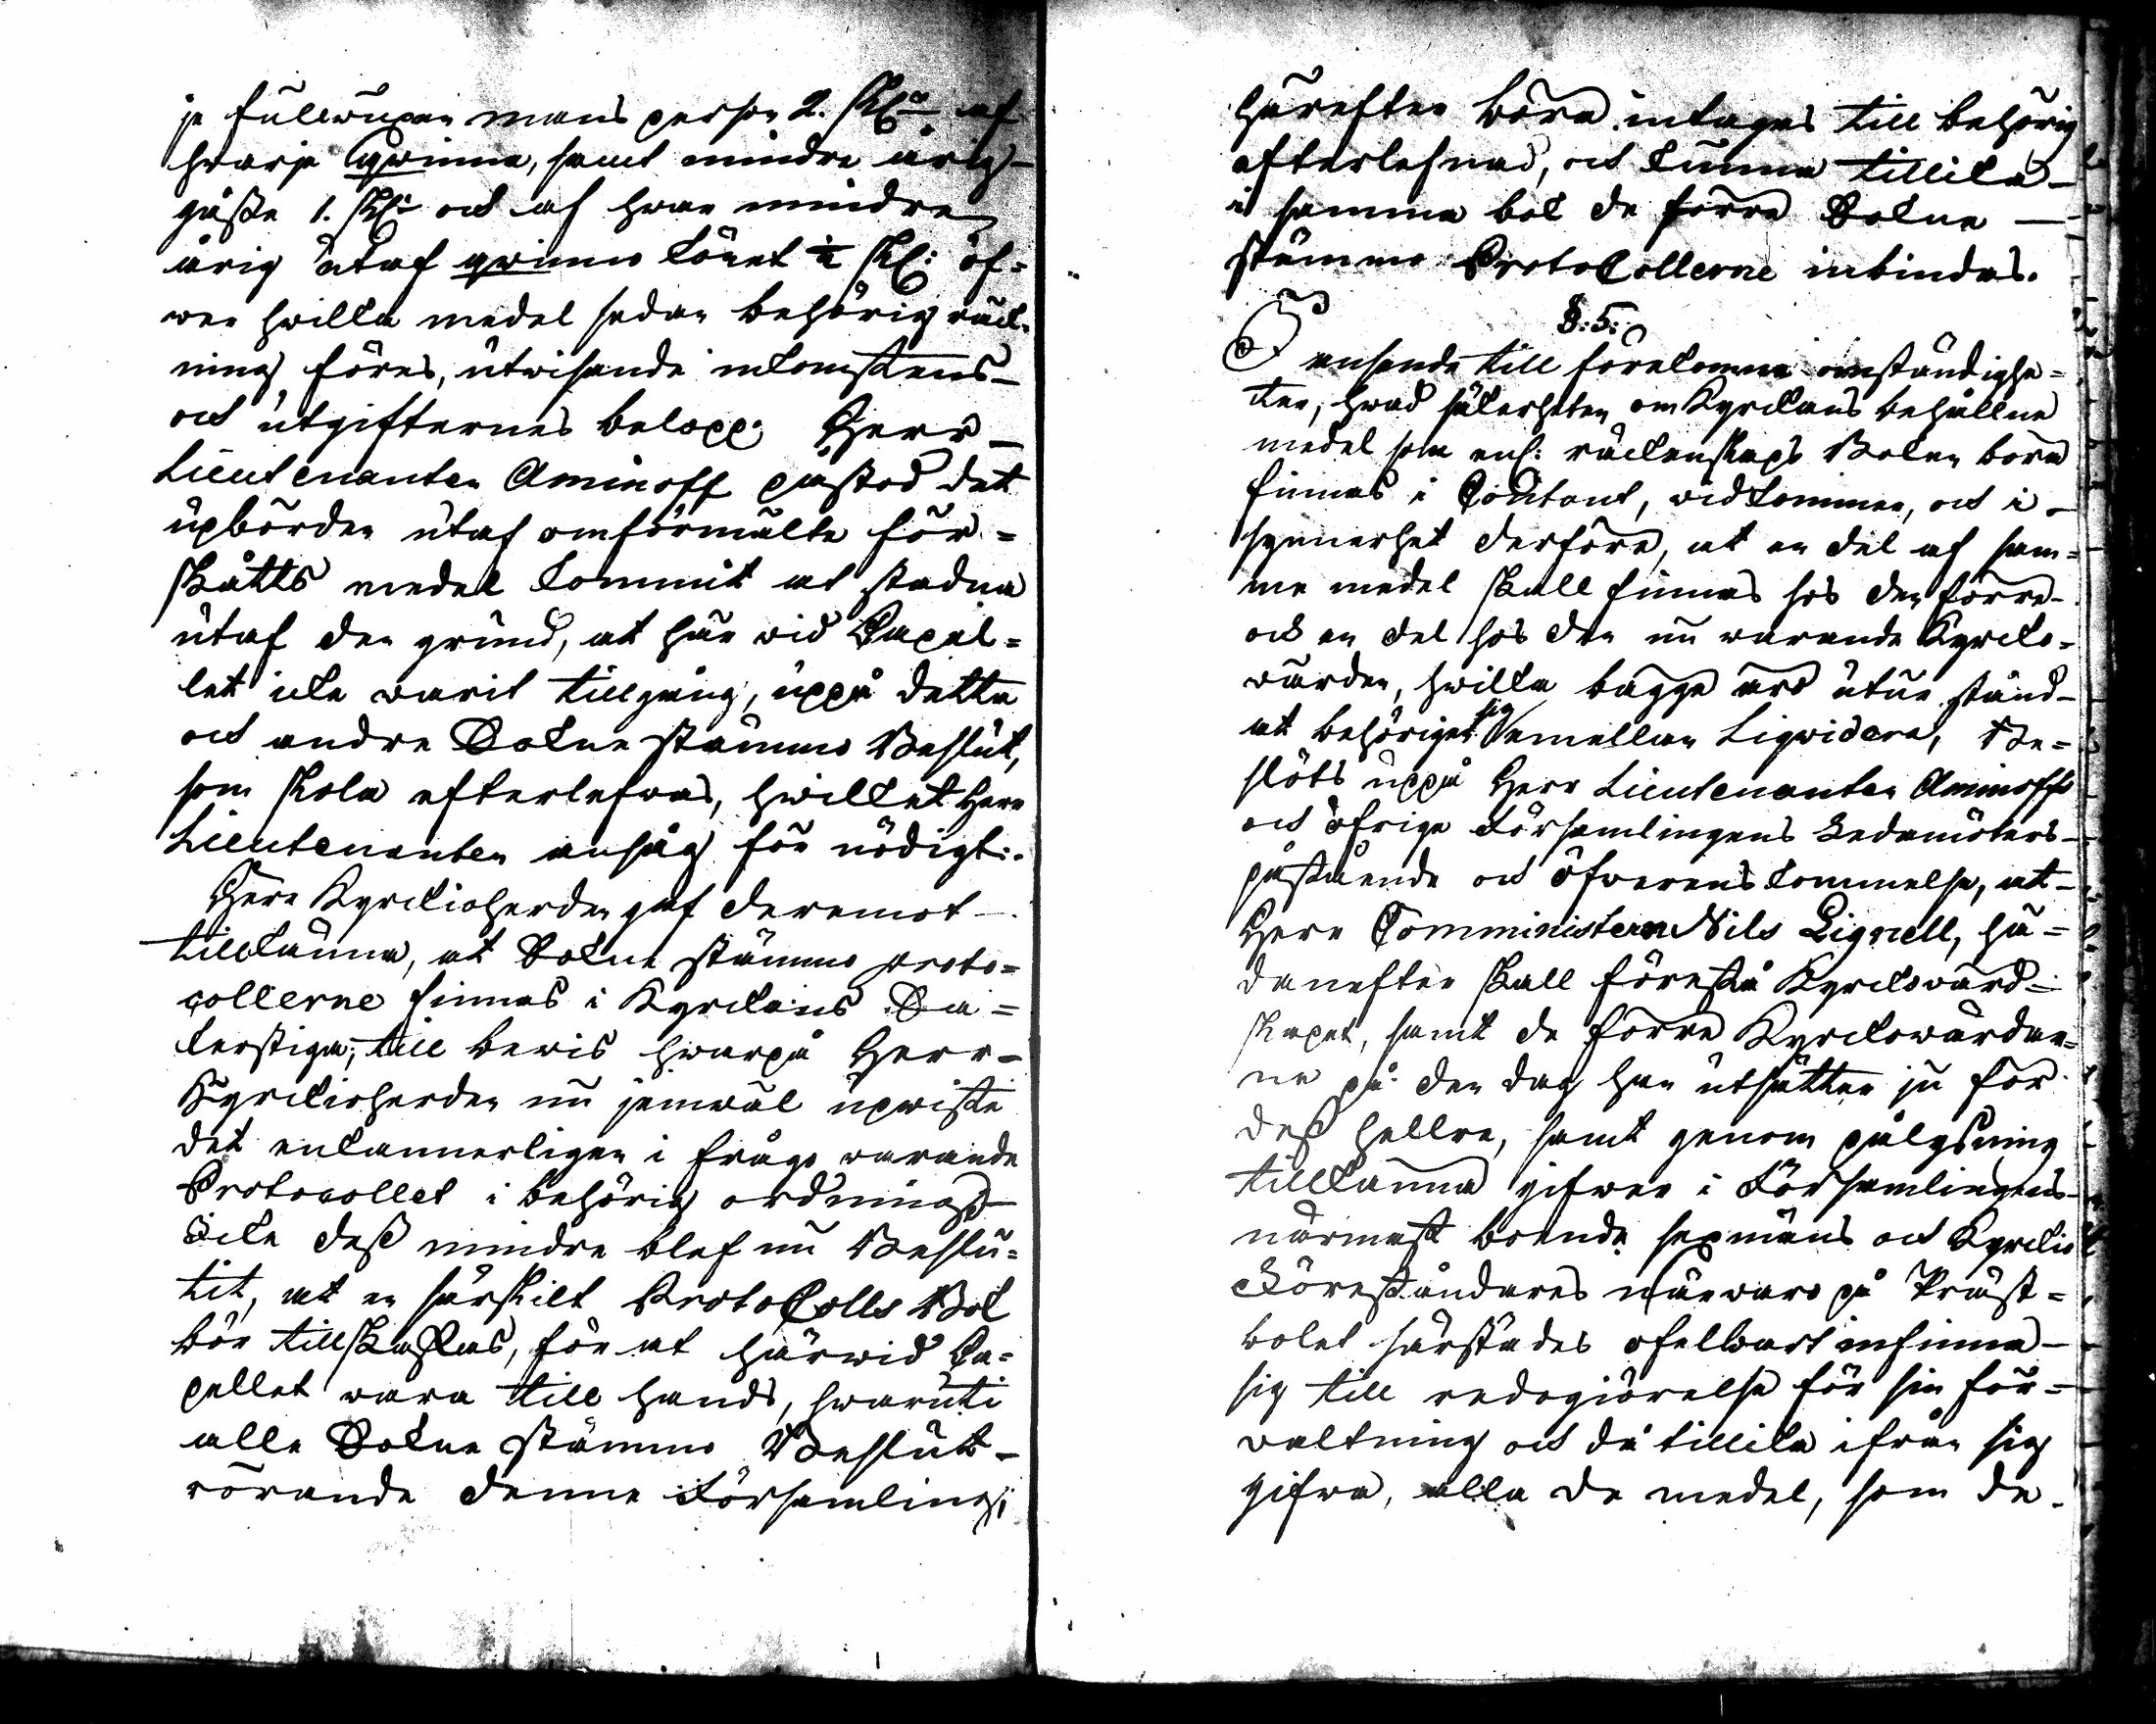 je fullwuxen mans person 2. sk:r af
hwarje qwinna, samt mindre årig
gåsse 1. sk:r och af hwar mindre
årig utaf qwinno könet ½ sk: öf-
wer hwilka medel sedan behörig räck-
ning föres, utwisande inkomstens-
och utgifternes belopp. Herr
Lieutenanten Aminoff påstod det
upbörden utaf omförmälte för-
skåtts medel kommit at stadna
utaf den grund, at här wid Capel-
let icke warit tillgång, uppå detta
och andre Sokne stämmo Beslut,
som skola efterlefwas, hwilket Herr
Lieutenanten ansåg för nödigt.
Herr Kyrckioherden gaf deremot
tillkänna, at Sokne stämmo proto-
collerne finnas i Kyrckans Sa-
kerstiga; till bewis hwarpå Herr
Kyrckioherden nu jemwäl upwiste
det enkannerligen i frågo warande
Protocollet i behörig ordning
Icke dess mindre blef nu Beslu-
tit, at en särskilt ProtoColls Bok
bör tillskaffas, för at härwid Ca-
pellet wara till hands, hwaruti
alle Sokne stämmo Beslut-
rörande denne Församling,
härefter böra intagas till behörig
efterlefnad, och kunna tillika
i samma bok de förre Sokne
stämmo ProtoCollerne inbindas.
§:5:
I anseende till förekomne omständighe-
ter, hwad säkerheten om Kyrckans behållne
medel som enl: räckenskaps Boken böra
finnas i Contant, widkommer, och i
synnerhet derföre, at en del af sam-
me medel skall finnas hos den förre
och en del hos den nu warande Kyrcko-
wärden, hwilka bägge äro utur stånd
at behörigt sig emellan Liqwidera, Be-
slöts uppå Herr Lieutenanten Aminoffs
och öfrige Församlingens Ledamöters
påstående och öfwerenskommelse, at
Herr Comministern Nils Lignell, hä-
danefter skall förestå Kyrckowärd-
skapet, samt de förre Kyrckowärdar-
ne på den dag han utsätter ju för
dess hellre, samt genom pålysning
tillkänna gifwer i Församlingens
närmast boende sexmäns och Kyrckio
Föreståndares närwaro på Präst-
bolet härstädes ofelbart infinna
sig till redogiörelse för sin för-
waltning och då tillika ifrån sig
gifwa, alla de medel, som de